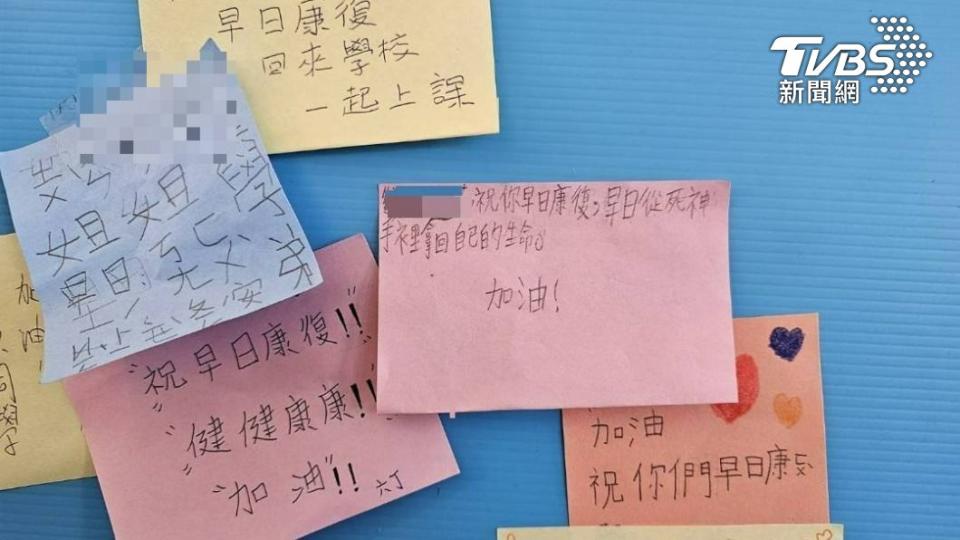 早日康復
回來學校
一起上課
TVBS
新聞網
姐姐學
祝你早日康復,早日從死神
手裡拿回自己的生命。
加油!
加
油
同
學
"祝早日康復!!"
"健健康康!!"
"加油"!! 六丁
加油
祝你們早日康